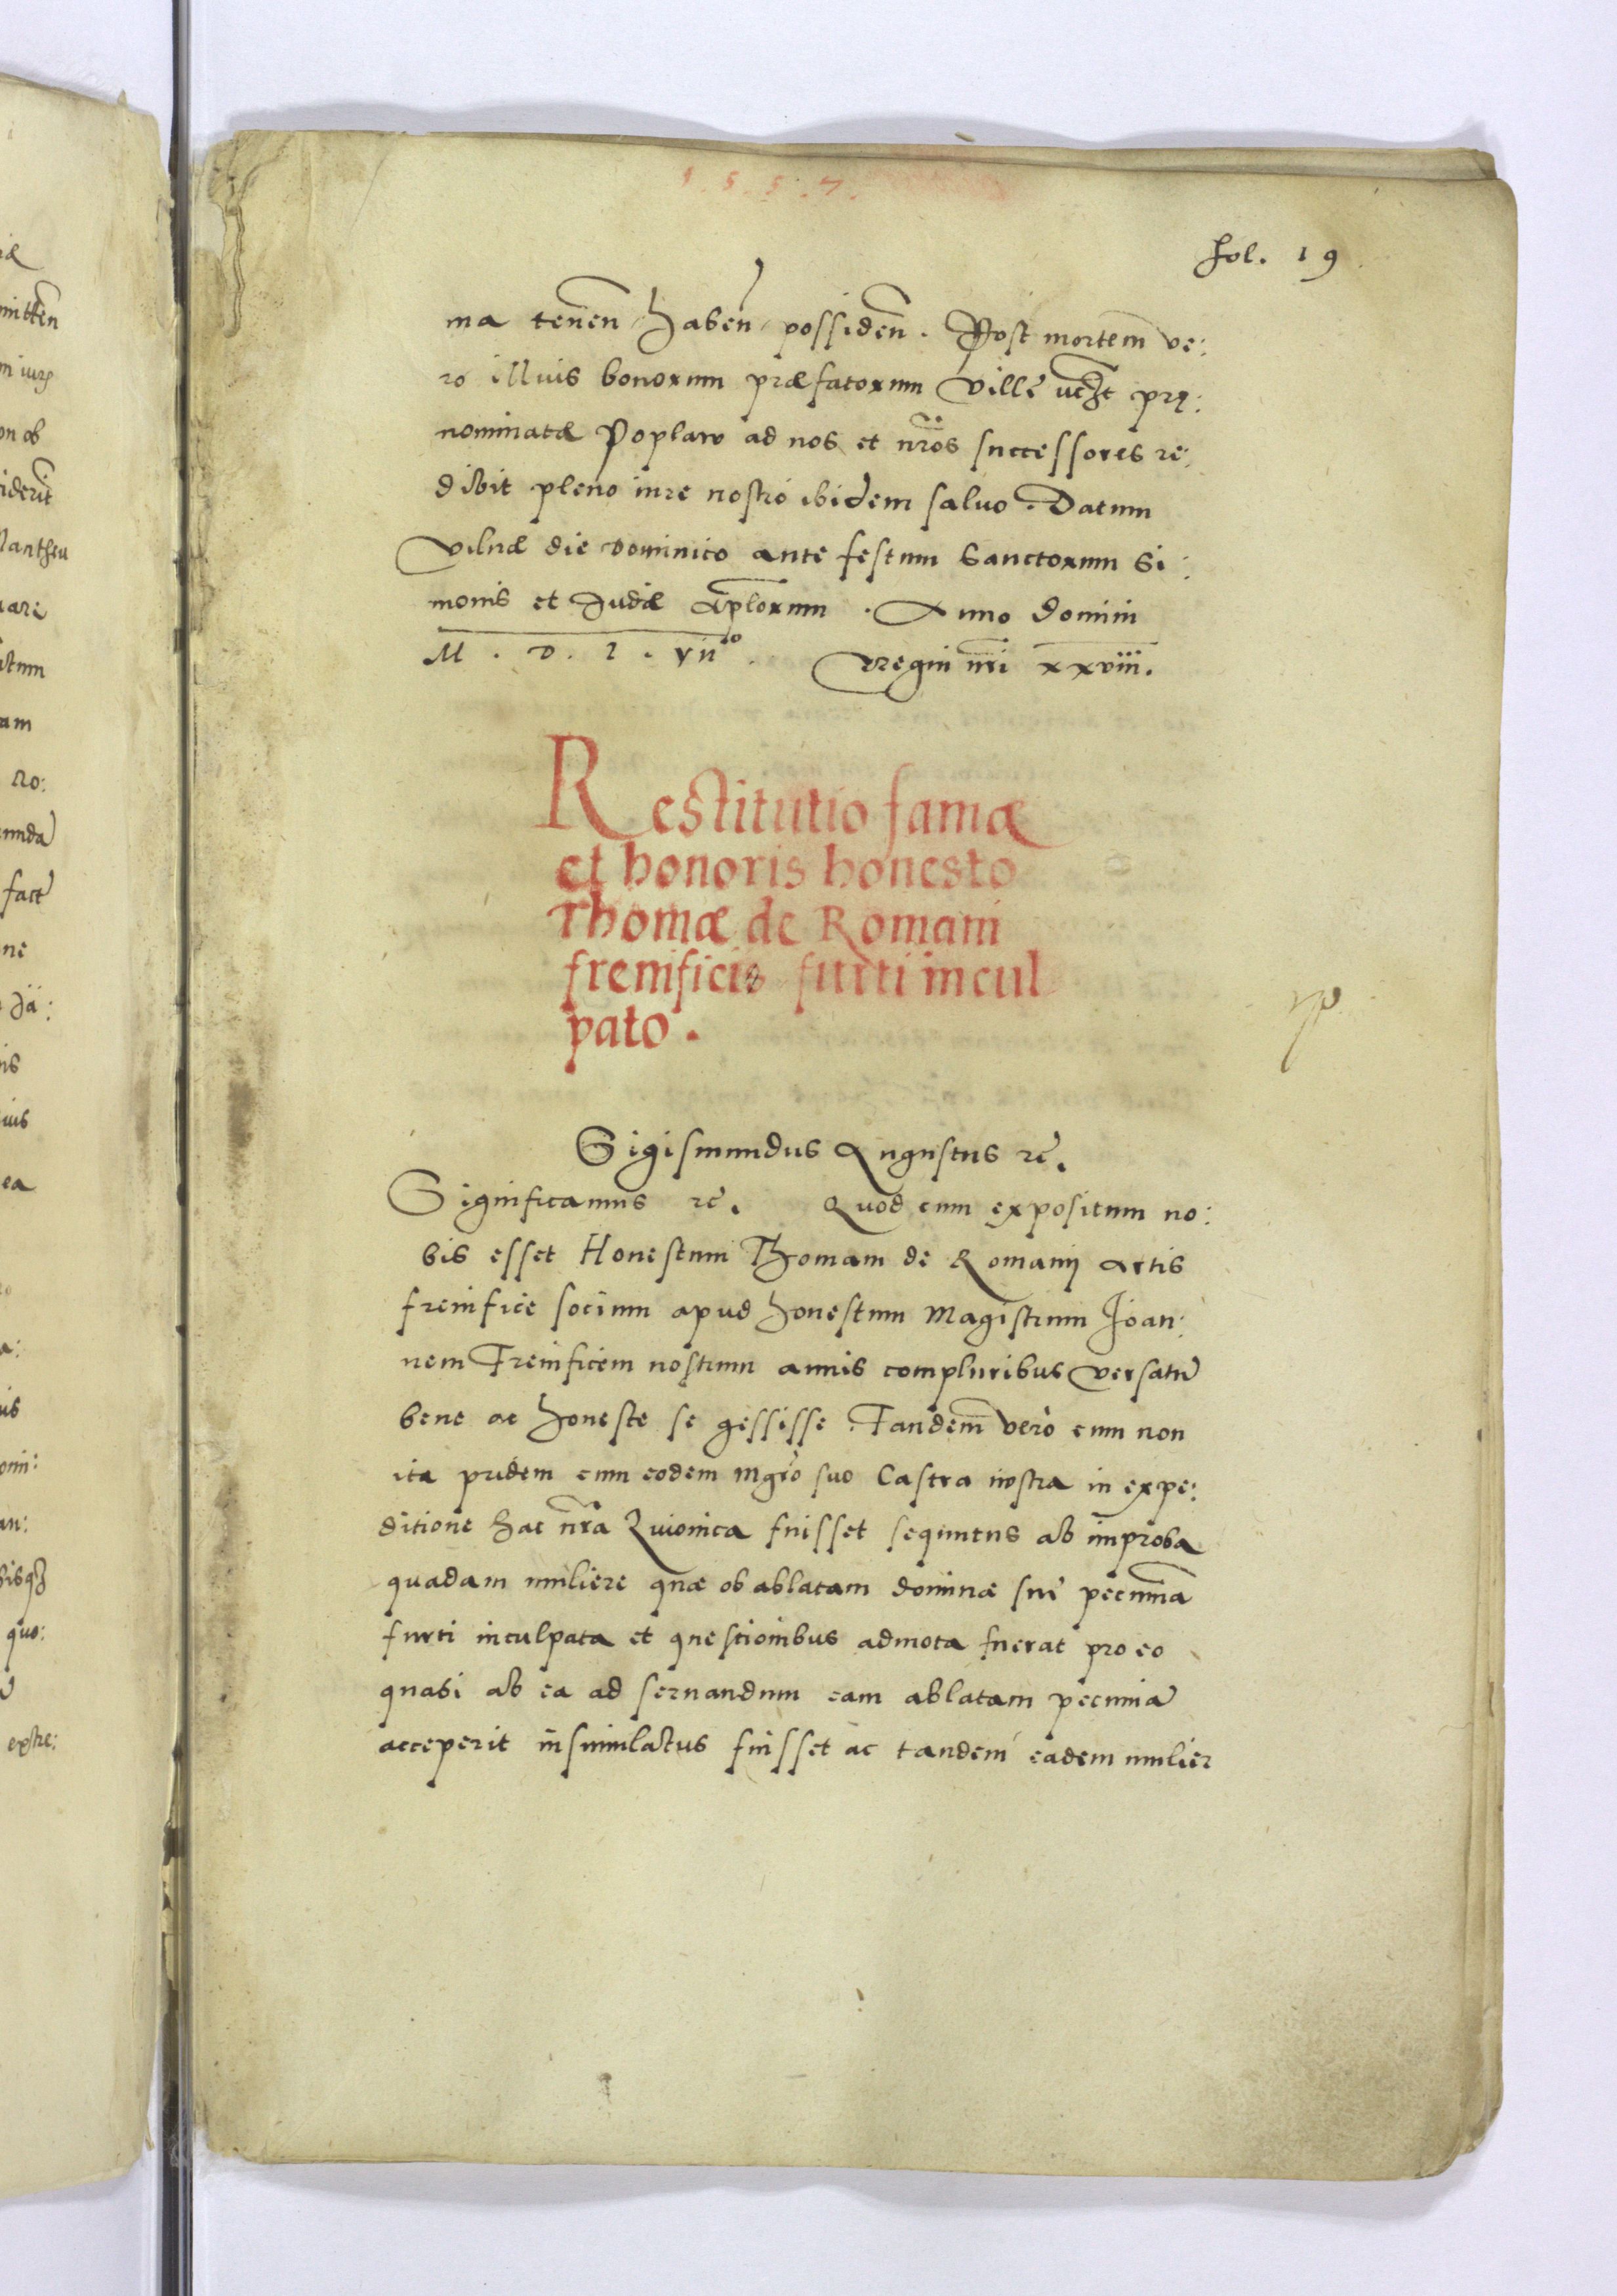 1.5.5.7.
fol. 19
ma tenen haben possiden. Post mortem ve:
ro illius bonorum præfatorum Ville prę:
nominatæ Poplaw ad nos et nros successores re:
dibit pleno iure nostro ibidem saluo. Datum
Vilnæ die Dominico ante festum Sanctorum Si:
monis et Judæ Aplorum. Anno Domini
M. D. L. VII^o. Vregni nri xxviii.
Restitutio famæ
et honoris honesto
Thomæ de Romani
frenificis furti incul
pato.
Sigismundus Augustus rc.
Significamus rc. Quod cum expositum no:
bis esset Honestum Thomam de Romanij artis
frenifice socium apud honestum Magistrum Joan:
nem Frenificem nostrum annis compluribus versatū
bene ac honeste se gessisse. Tandem vero cum non
ita pridem cum eodem mgro suo Castra nostra in expe:
ditione hac nra Livonica fuisset sequutus ab improba
quadam muliere quæ ob ablatam dominæ suæ pecunia
furti inculpata et questionibus admota fuerat pro eo
quasi ab ea ad seruandum eam ablatam pecuniā
acceperit insimulatus fuisset ac tandem eadem mulier
mitten
m iure
on ob
iderit
are
tum
am
No:
unda
fact
ne
Ja:
is
ea
a:
us
omi:
an:
bisq
quo:
extre: